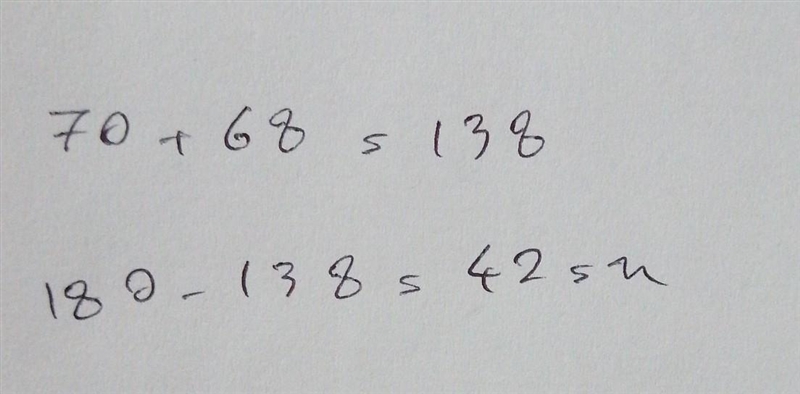 70 + 68 = 138
180 - 138 = 42 = x